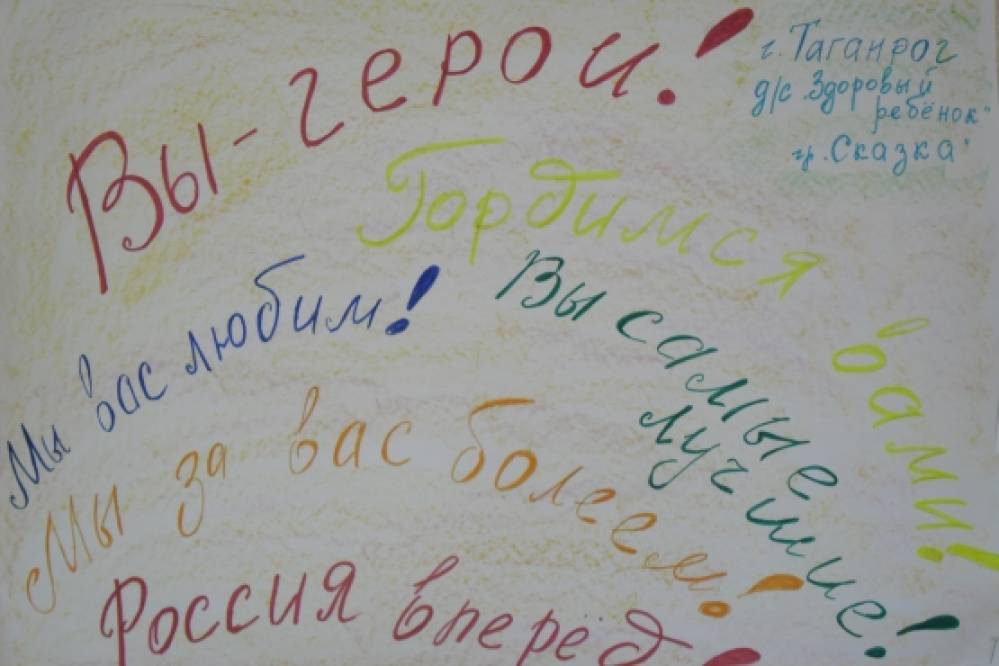 Вы - герои!
г. Таганрог
д/с "Здоровый
ребёнок"
гр. "Сказка"
Гордимся вами!
Мы вас любим!
Вы самые
лучшие!
Мы за вас болеем!
Россия вперёд!